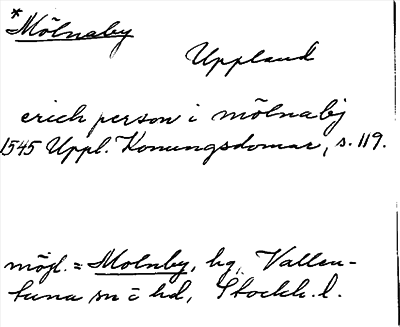 *Mölnaby
Uppland
erich person i mölnabj
1545 Uppl. Konungsdomar, s. 119.
möjl. = Molnby, hg, Vallen-
tuna sn o hd, Stockh. l.